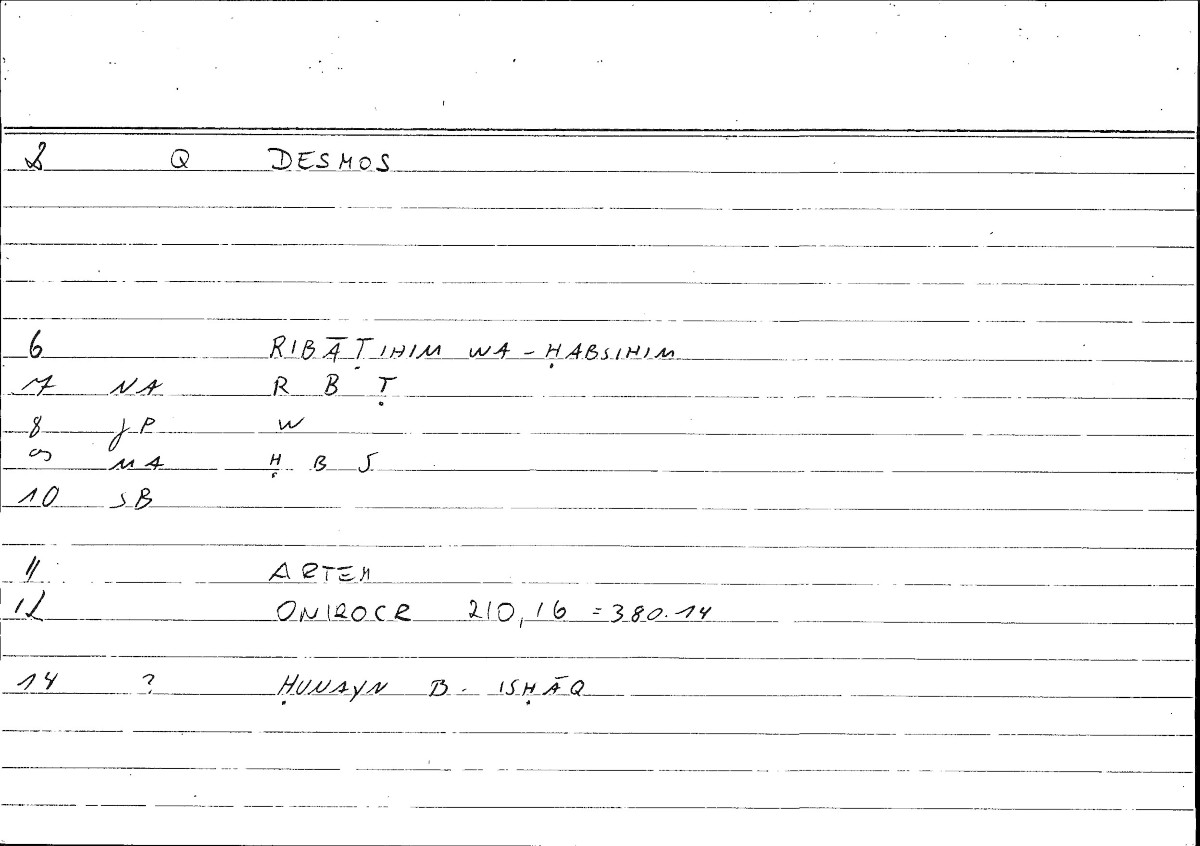 2 Q DESMOS
6 RIBĀṬIHIM WA-ḤABSIHIM
7 NA R B Ṭ
8 JP W
9 MA Ḥ B S
10 SB
11 ARTEM
12 ONIROCR 210,16 =380.14
14 ? ḤUNAYN B. ISḤĀQ